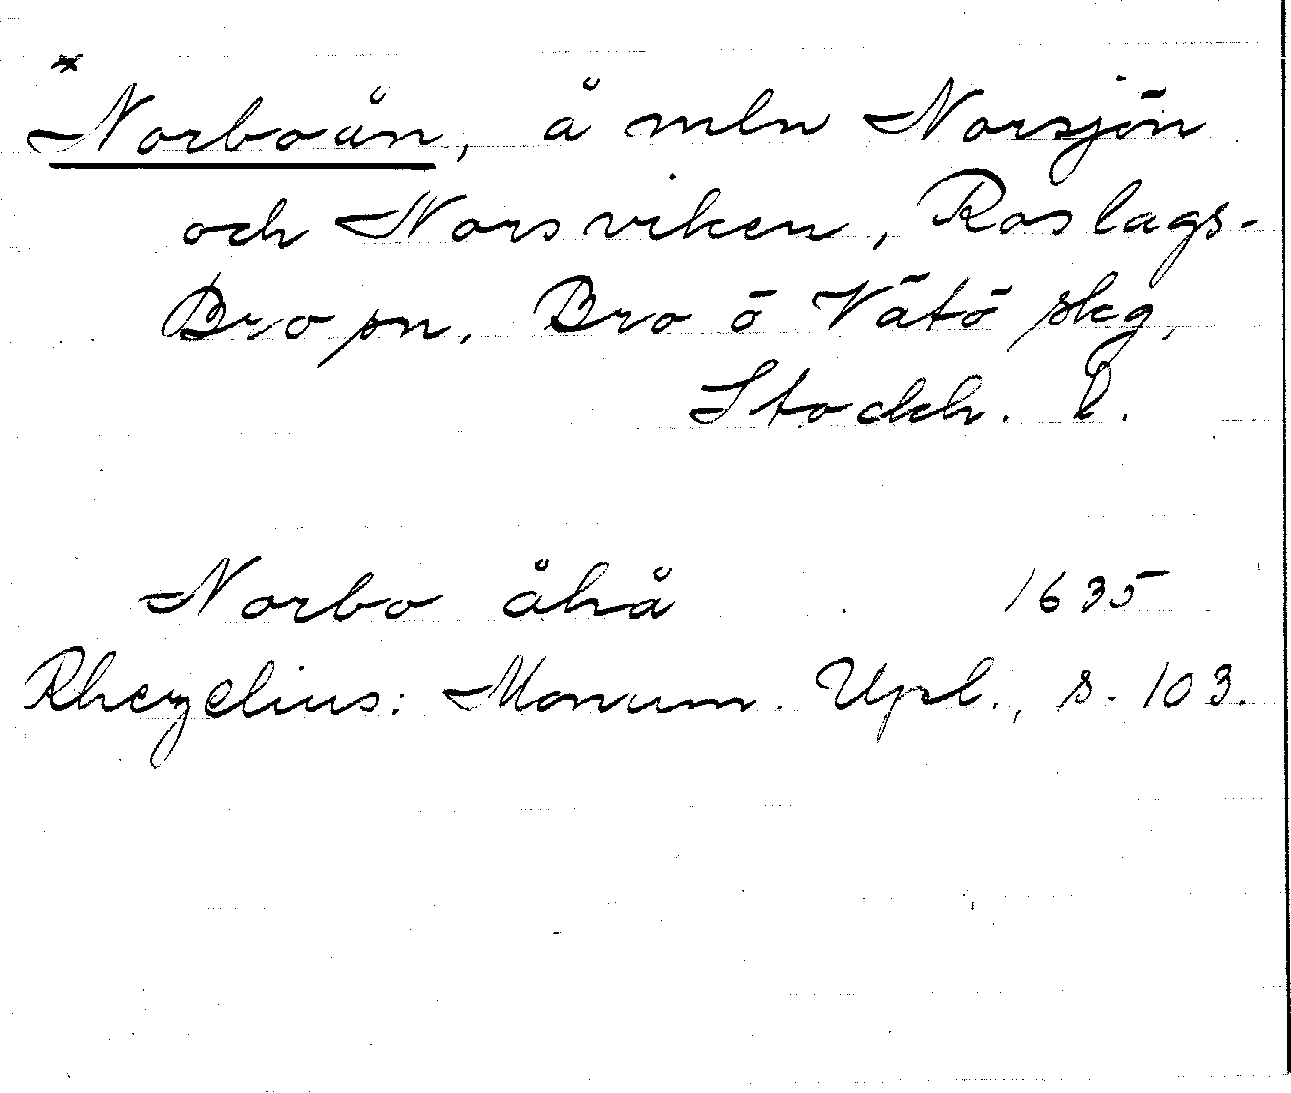 * Norboån, å mln Norsjön
och Norsviken, Roslags-
Bro pn. Bro o Vätö skg,
Stockh. l.
Norbo åhå 1635
Rhezelius: Monum. Upl., s. 103.